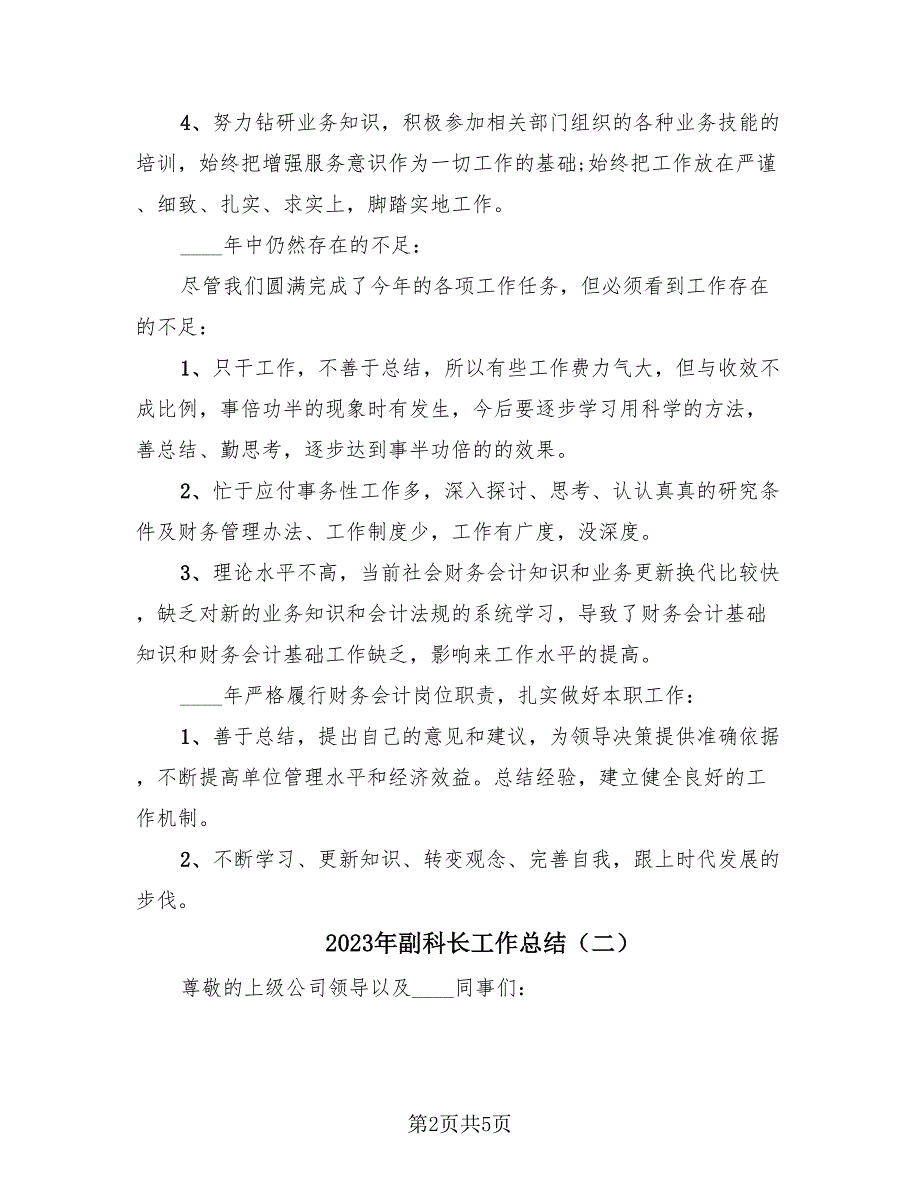 4、努力钻研业务知识，积极参加相关部门组织的各种业务技能的
培训，始终把增强服务意识作为一切工作的基础;始终把工作放在严谨
、细致、扎实、求实上，脚踏实地工作。
____年中仍然存在的不足：
尽管我们圆满完成了今年的各项工作任务，但必须看到工作存在
的不足：
1、只干工作，不善于总结，所以有些工作费力气大，但与收效不
成比例，事倍功半的现象时有发生，今后要逐步学习用科学的方法，
善总结、勤思考，逐步达到事半功倍的的效果。
2、忙于应付事务性工作多，深入探讨、思考、认认真真的研究条
件及财务管理办法、工作制度少，工作有广度，没深度。
3、理论水平不高，当前社会财务会计知识和业务更新换代比较快
，缺乏对新的业务知识和会计法规的系统学习，导致了财务会计基础
知识和财务会计基础工作缺乏，影响来工作水平的提高。
____年严格履行财务会计岗位职责，扎实做好本职工作：
1、善于总结，提出自己的意见和建议，为领导决策提供准确依据
，不断提高单位管理水平和经济效益。总结经验，建立健全良好的工
作机制。
2、不断学习、更新知识、转变观念、完善自我，跟上时代发展的
步伐。
2023年副科长工作总结（二）
尊敬的上级公司领导以及____同事们：
第2页共5页